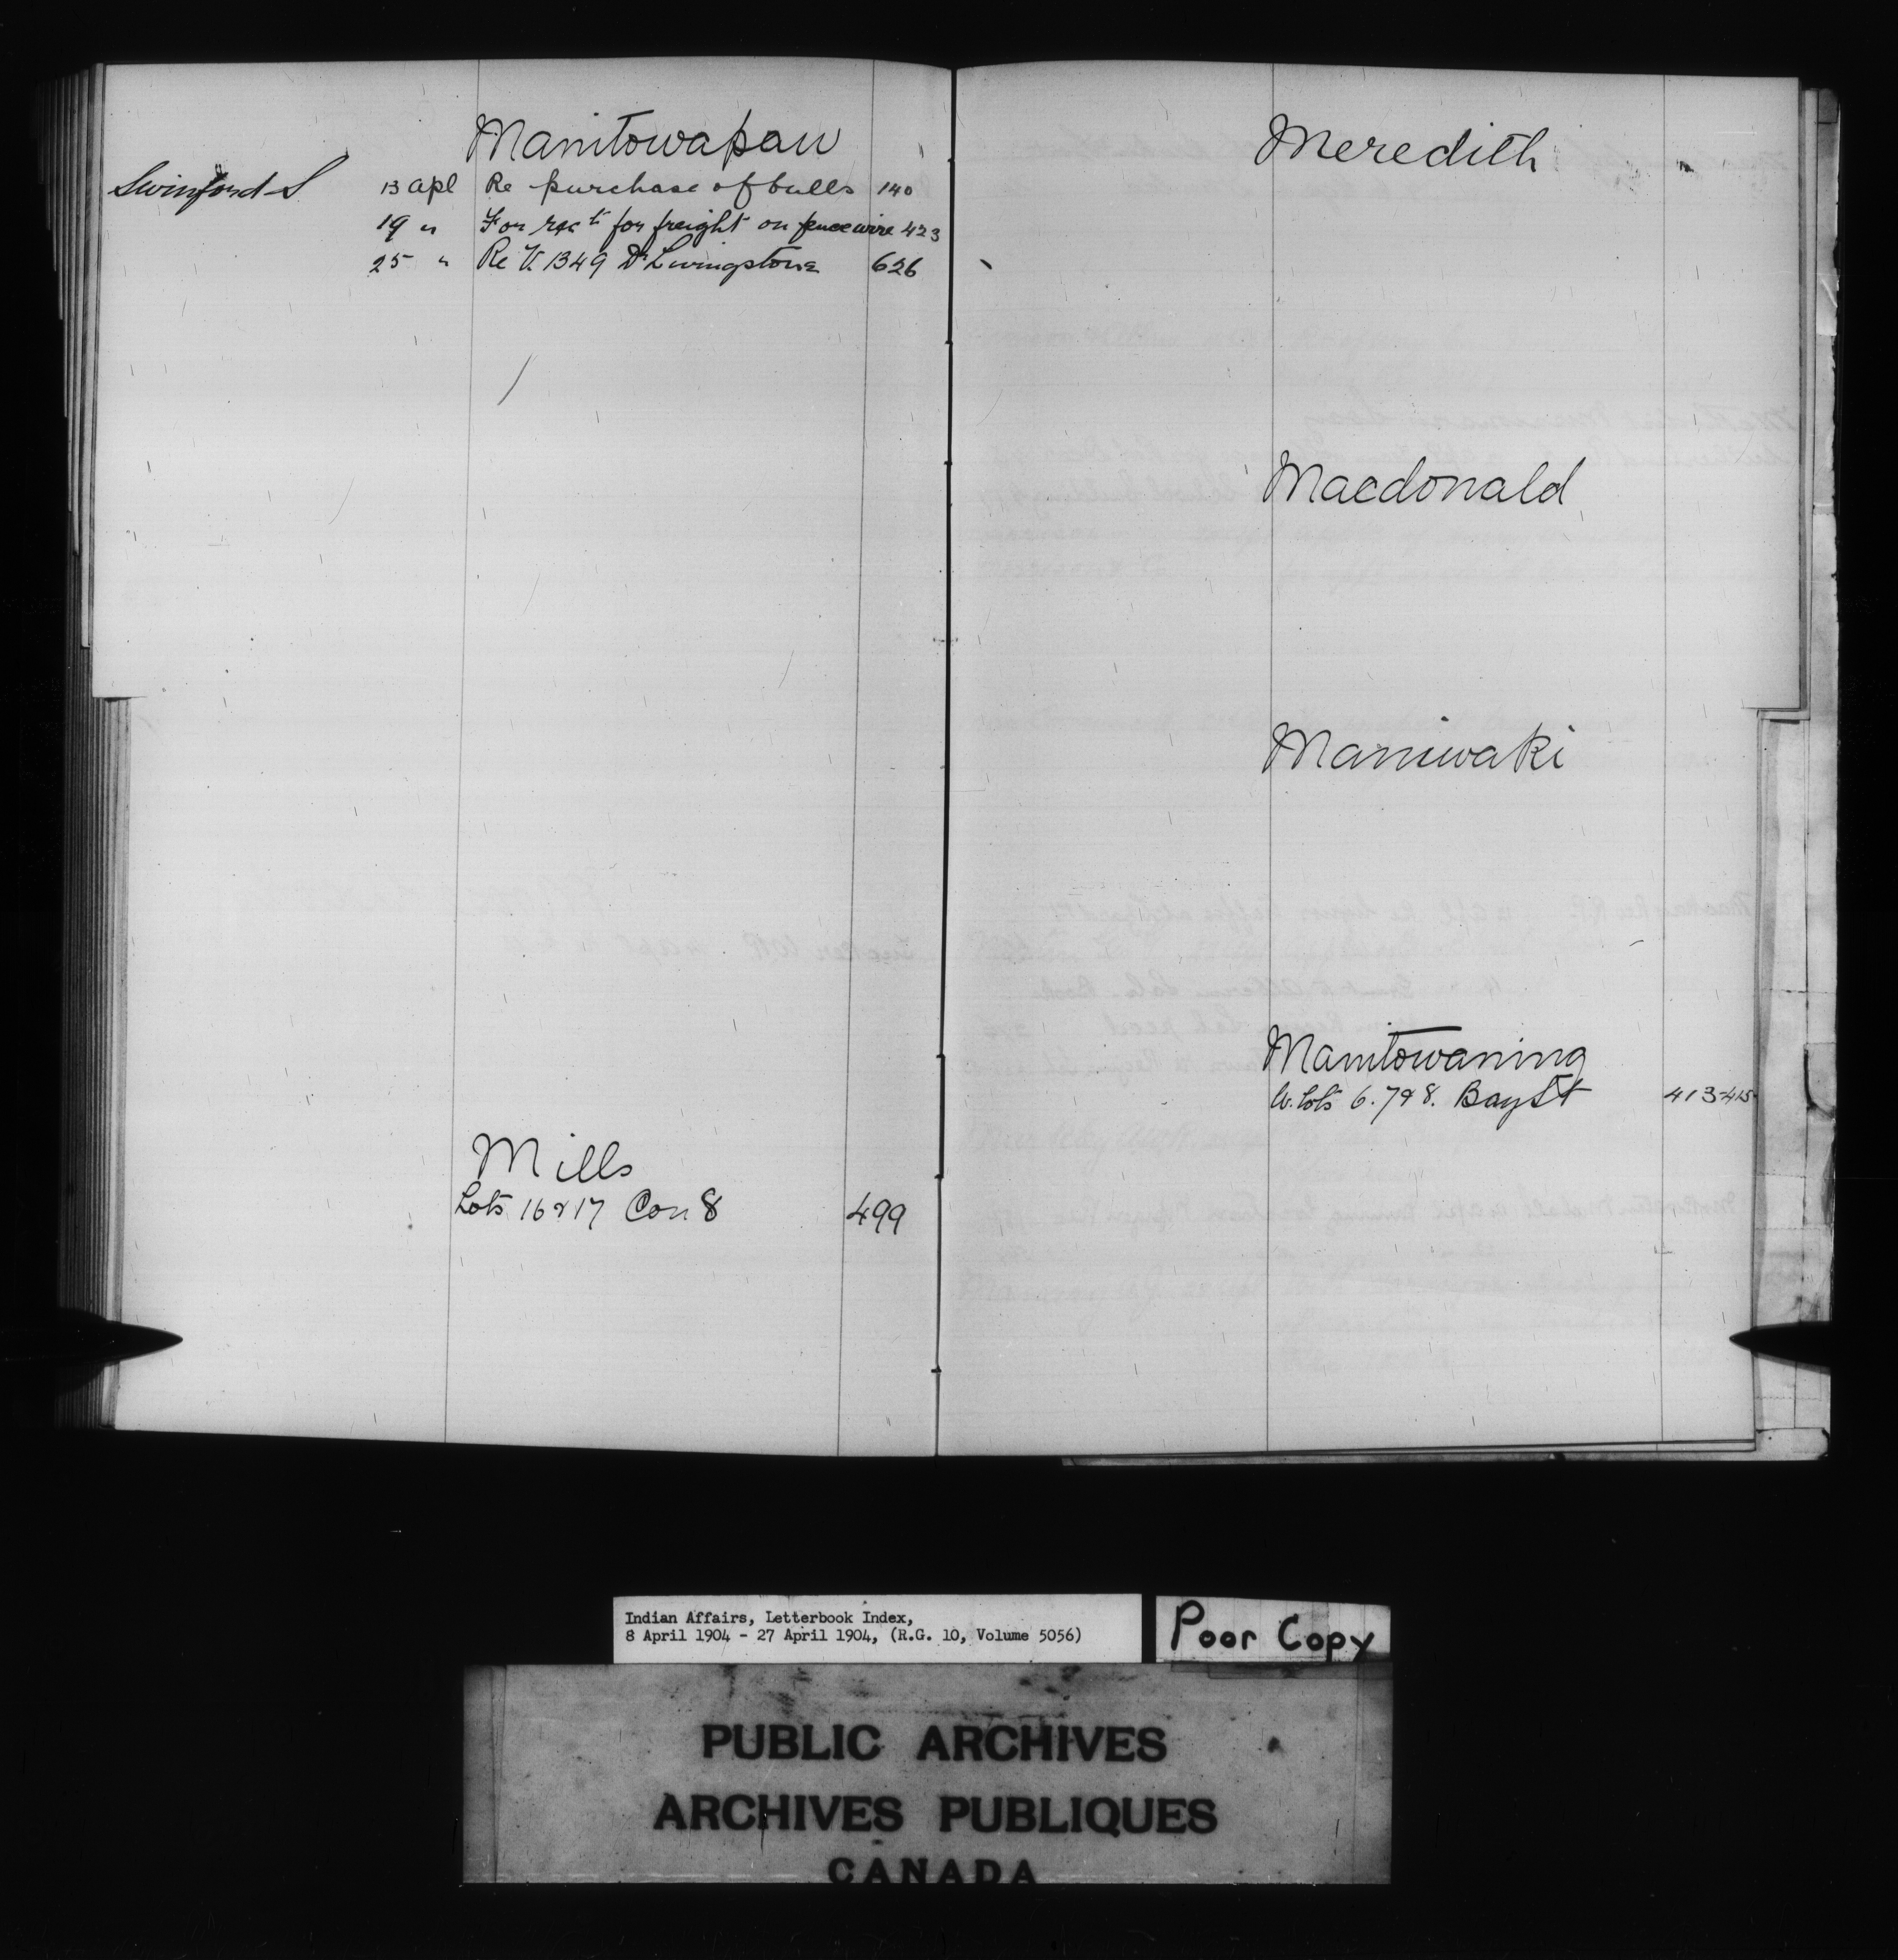 Manitowapau
Swinford S 13 Apl Re purchase of bulls 140
19 " For rect for freight on fence wire 423
25 " Re V. 1349 Dr Livingstone 626
Mills
Lots 16 & 17 Con 8 499
Meredith
Macdonald
Maniwaki
Manitowaning
W. Lots 6. 7 & 8. Bay St 413-415
Indian Affairs, Letterbook Index,
8 April 1904 - 27 April 1904, (R.G. 10, Volume 5056)
Poor Copy
PUBLIC ARCHIVES
ARCHIVES PUBLIQUES
CANADA